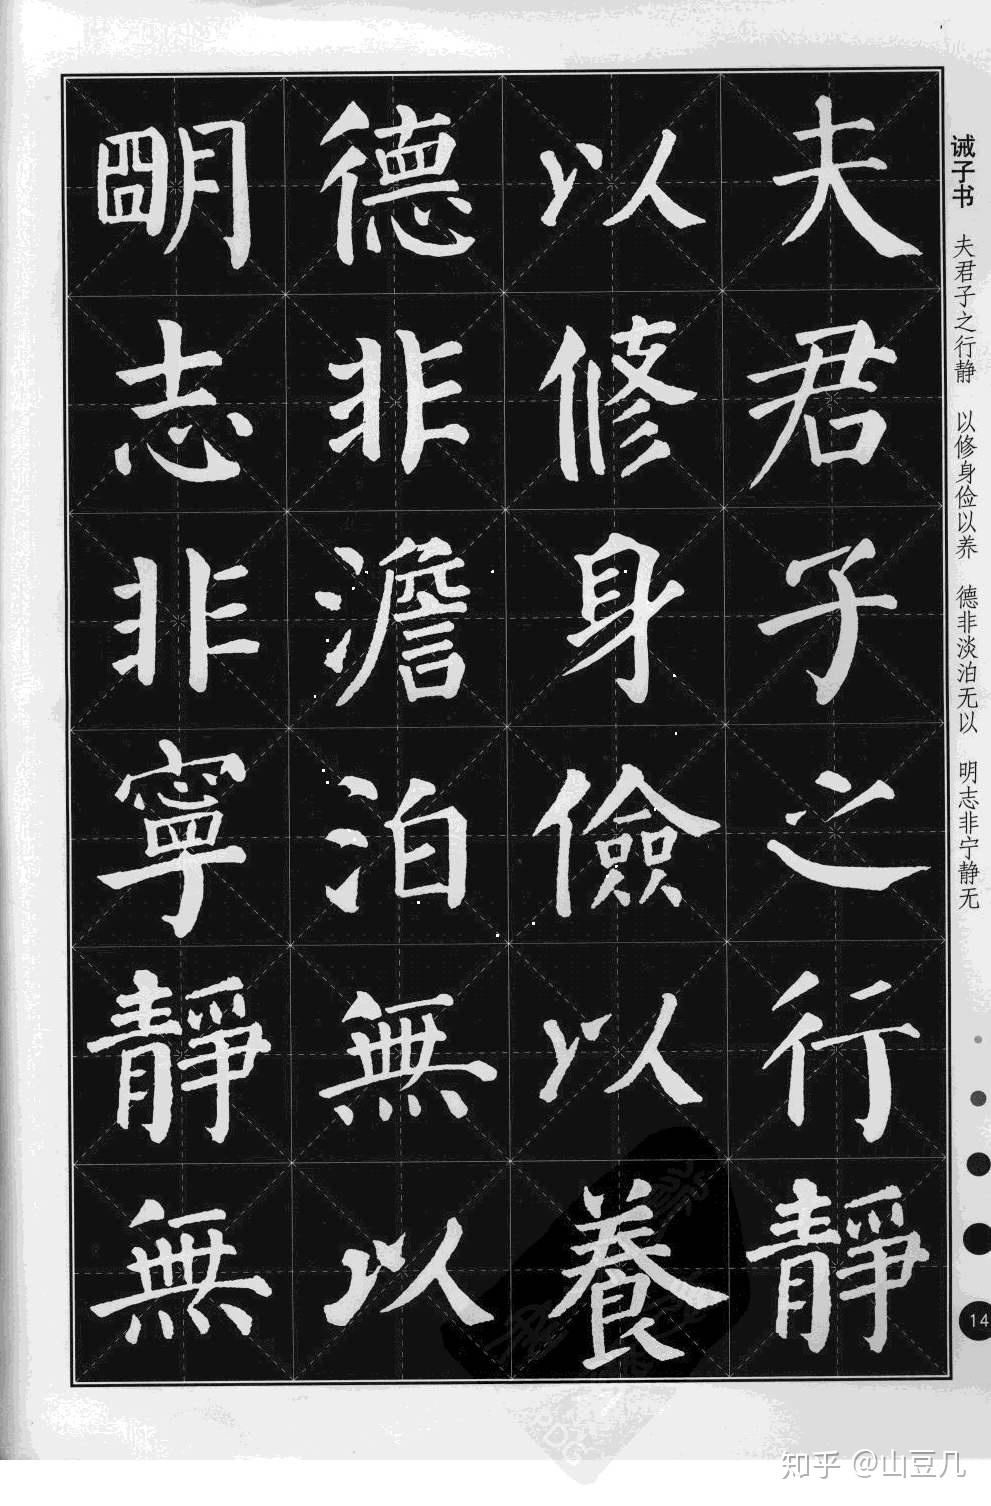 夫君子之行靜
以修身儉以養
德非澹泊無以
明志非寧靜無
诫子书 夫君子之行静 以修身俭以养 德非淡泊无以 明志非宁静无
14
知乎 @山豆几